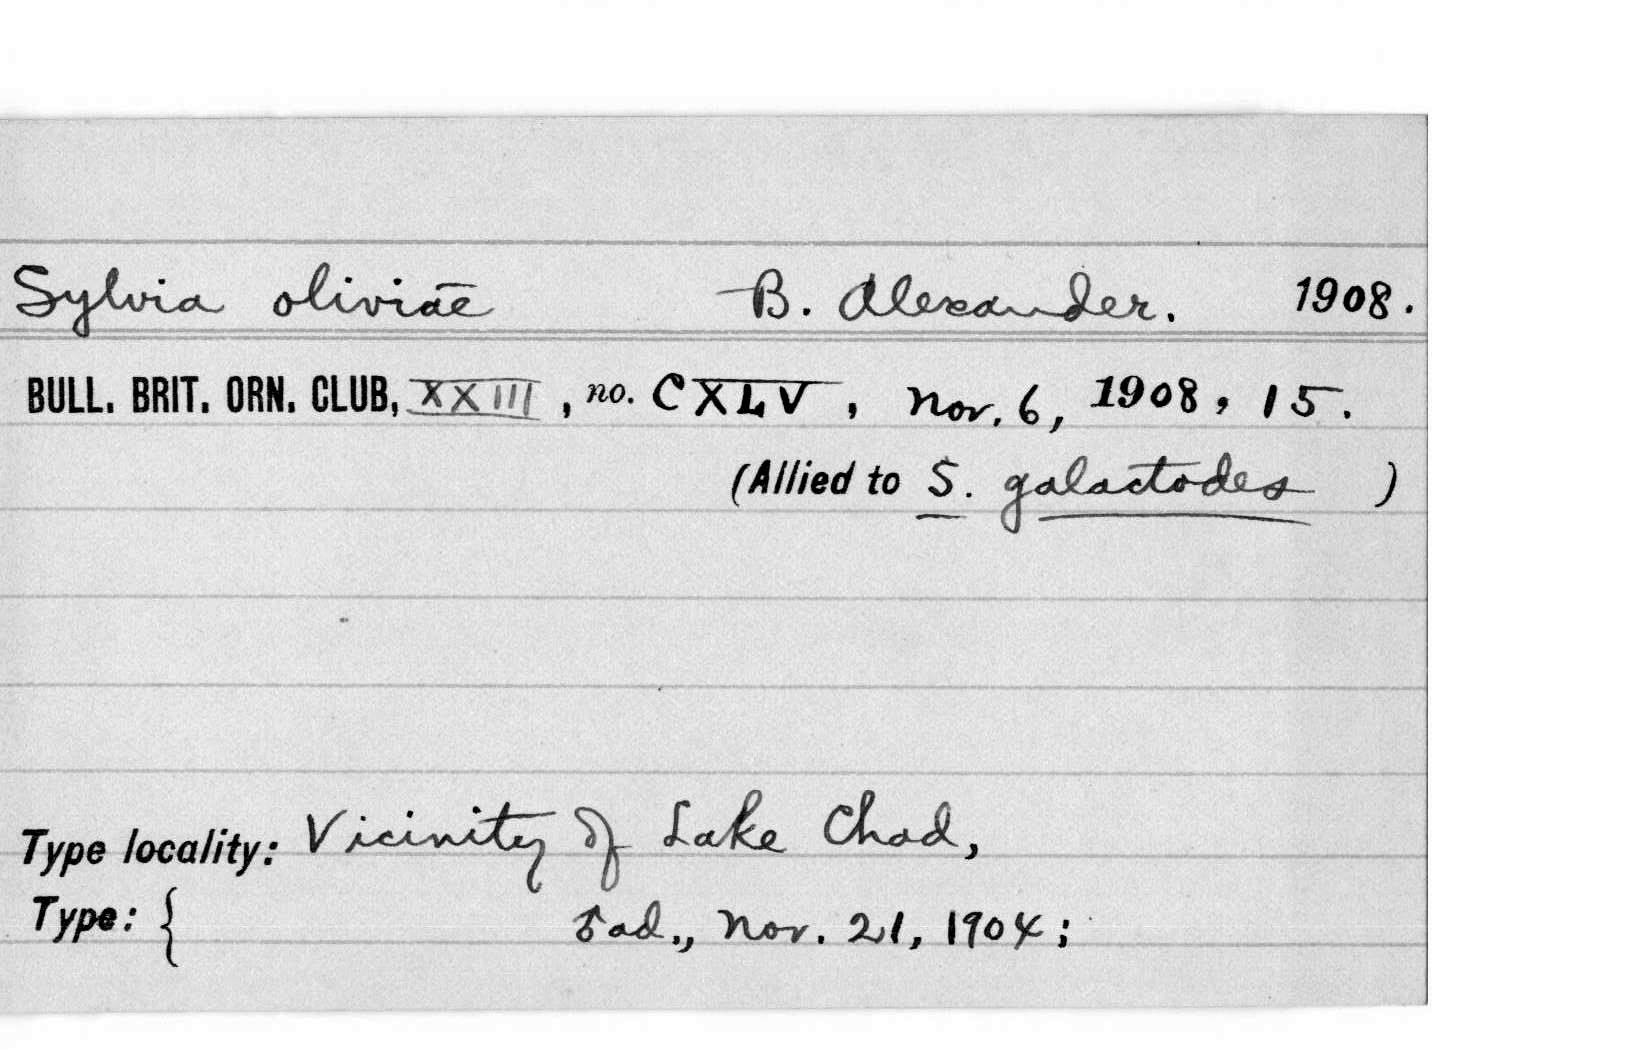 Sylvia oliviae B. Alexander. 1908.
BULL. BRIT. ORN. CLUB, XXIII, no. CXLV, Nov. 6, 1908, 15.
(Allied to S. galactodes )
Type locality: Vicinity of Lake Chad,
Type: { ♂ ad., Nov. 21, 1904;